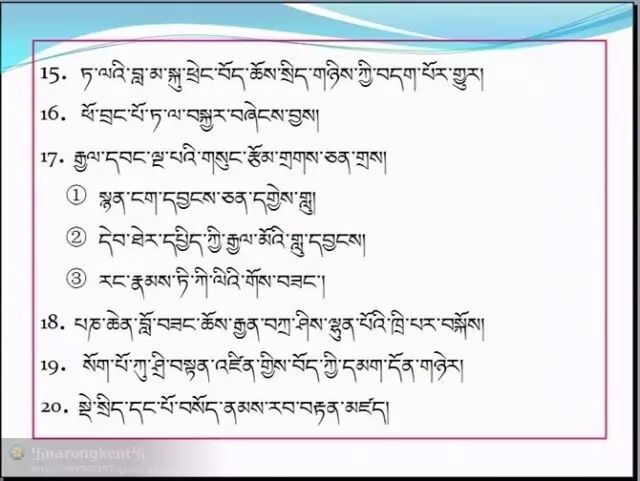 15. ཏ་ལའི་བླ་མ་སྐུ་ཕྲེང་བོད་ཆོས་སྲིད་གཉིས་ཀྱི་བདག་པོར་གྱུར།
16. ཕོ་བྲང་པོ་ཏ་ལ་བསྐྱར་བཞེངས་བྱས།
17. རྒྱལ་དབང་ལྔ་པའི་གསུང་རྩོམ་གྲགས་ཅན་གྲས།
① སྙན་ངག་དབྱངས་ཅན་དགྱེས་གླུ།
② དེབ་ཐེར་དཔྱིད་ཀྱི་རྒྱལ་མོའི་གླུ་དབྱངས།
③ རང་རྣམས་ཏི་ཀི་ལིའི་གོས་བཟང་།
18. པཎ་ཆེན་བློ་བཟང་ཆོས་རྒྱན་བཀྲ་ཤིས་ལྷུན་པོའི་ཁྲི་པར་བསྐོས།
19. སོག་པོ་ཀུ་ཤྲི་བསྟན་འཛིན་གྱིས་བོད་ཀྱི་དམག་དོན་གཉེར།
20. སྡེ་སྲིད་དང་པོ་བསོད་ནམས་རབ་བརྟན་མཛད།
卐narongkent卐